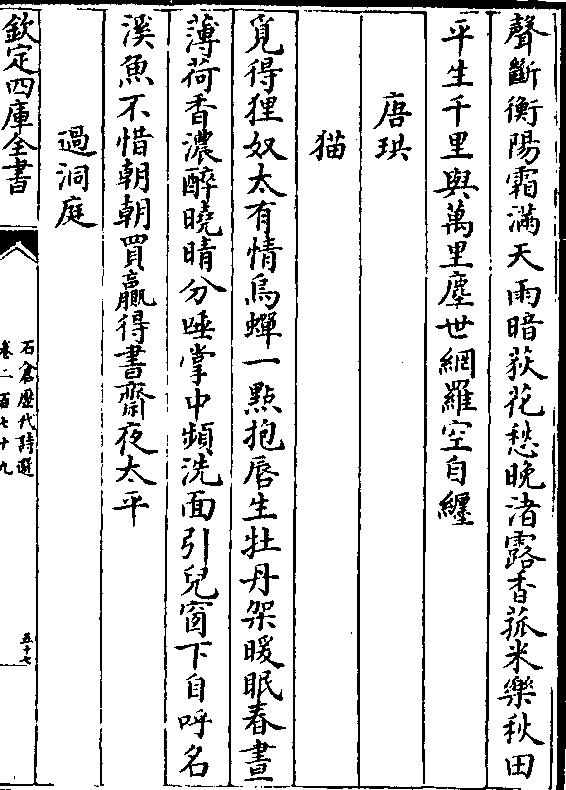 聲斷衡陽霜滿天雨暗荻花愁晚渚露香菰米樂秋田
平生千里與萬里塵世網羅空自纒
唐珙
猫
覓得狸奴太有情烏蟬一點抱唇生牡丹架暖眠春晝
薄荷香濃醉曉晴分唾掌中頻洗面引兒窗下自呼名
溪魚不惜朝朝買贏得書齋夜太平
過洞庭
欽定四庫全書
石倉歴代詩選
卷二百七十九
五十七